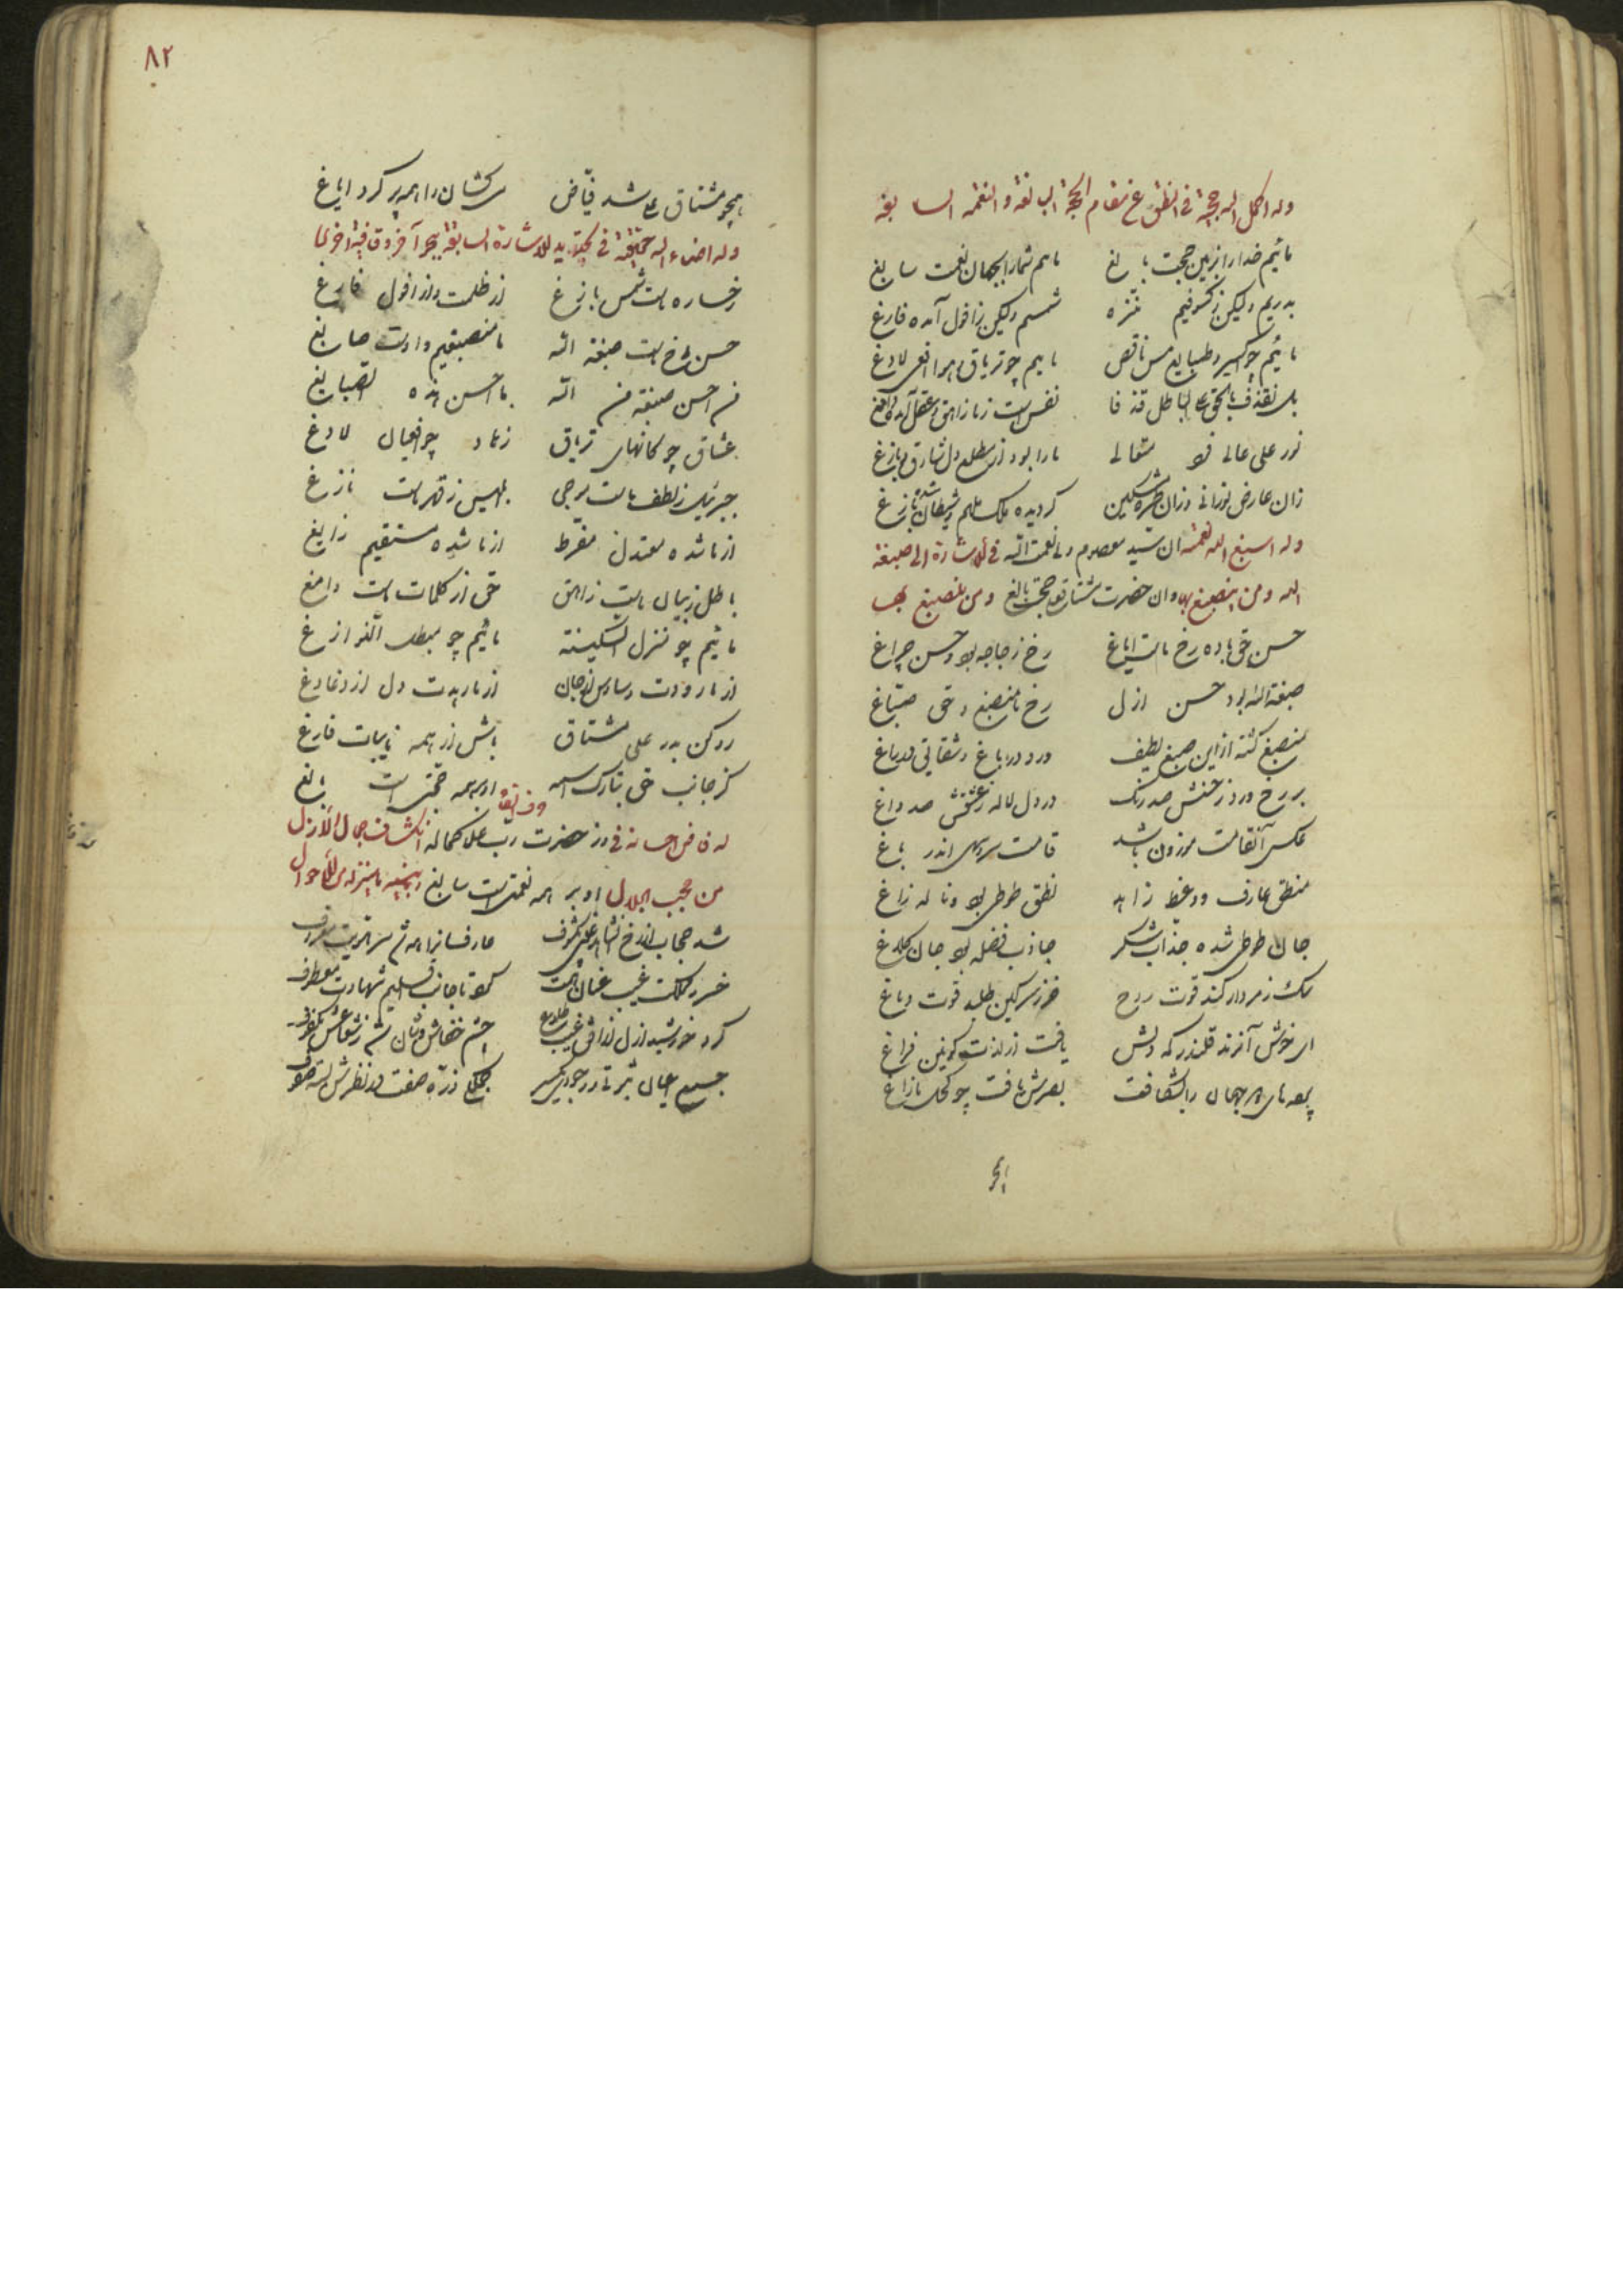 وله اکمل الله حجته فی النطق عن مقام الحجة البالغة و النعمة السابغة
مائیم خدا را بزمین حجت بالغ ماهم شما را بجهان نعمت سابغ
بدریم ولیکن ز کسوفیم منزه شمسیم ولیکن ز افول آمده فارغ
مائیم چو اکسیر و طبایع مس ناقص ماییم چو تریاق و هوا افعی لادغ
بل نقذف بالحق علی الباطل قذفا نفس است ز ما زاهق و عقل آمده دامغ
نور علی عالی متعالی ما را بود از مطلع دل شارق و بازغ
زان عارض نورانی و زان طره مشکین گردیده ملک ملهم و شیطان شده نازغ
وله اسبغ الله نعمته ان سید معصوم ولی نعمت الله فی الاشارة الی صبغة
الله و من انصبغ بها و ان حضرت مشتاق حجت بالغ و من ینصبغ بها
حسن حق باده رخ ماست ایاغ رخ زجاجه بود و حسن چراغ
صبغة الله بود حسن ازل رخ ما منصبغ و حق صباغ
منصبغ گشته از این صبغ لطیف ورد در باغ و شقایق در راغ
بر رخ ورد ز حسنش صد رنگ در دل لاله ز عشقش صد داغ
عکس آنقامت موزون باشد قامت سرو سهی اندر باغ
منطق عارف و وعظ زاهد نطق طوطی بود و ناله زاغ
جان طوطی شده جذاب شکر جاذب فضله بود جان کلاغ
سگ ز مردار کند قوت روح خر ز سرگین طلبد قوت دماغ
ای خوش آنرند قلندر که دلش یافت از لذت کونین فراغ
پرده های جهان را بشکافت بصرش یافت چو کحل مازاغ
همچو مشتاق علی شد فیاض سرکشان را همه پر کرد ایاغ
وله اضاء الله حقیقته فی تجدید للاشارة السابقة ببحر آخر و قافیة اخری
رخساره ماست شمس بازغ از ظلمت و از افول فارغ
حسن رخ ماست صبغة الله ما منصبغیم و اوست صابغ
من احسن صبغة من الله ما احسن هذه الصبایغ
عشاق چو کانهای تریاق زهاد چو افعیان لادغ
جبریل ز لطف ماست موحی ابلیس ز قهر ماست نازغ
از ما شده معتدل مفرط از ما شده مستقیم زایغ
باطل ز بیان ماست زاهق حق از کلمات ماست دامغ
مائیم چو منزل السکینة مائیم چو مبطل النوازغ
از ما رودت وساوس از جان از ما رهدت دل از دغادغ
رو کن بدر علی مشتاق باش از همه نایبات فارغ
کز جانب حق تبارک اسمه او بر همه حجتی است بالغ
له فاض احسانه فی رمز حضرت رب علا کماله انکشاف جمال الازل
من حجب الجلال او بر همه نعمتی است سابغ
شد حجاب از رخ مکشوف عارفان را همه شد سر هویت معروف
خسرو مملکت غیب عنان تافت کرد تا جانب اقلیم شهادت معطوف
کرد خورشید ازل از افق غیب طلوع چشم خفاش وشان شد ز شعاعش مکفوف